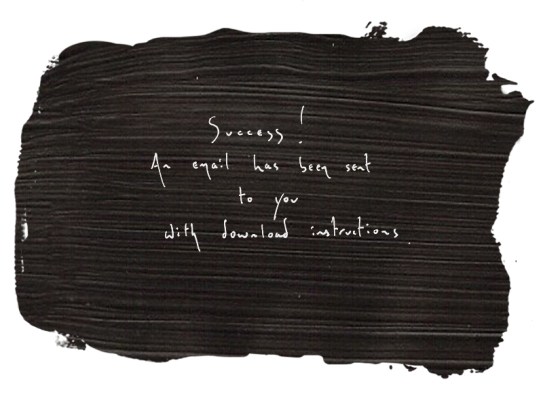 Success!
An email has been sent
to you
with download instructions.